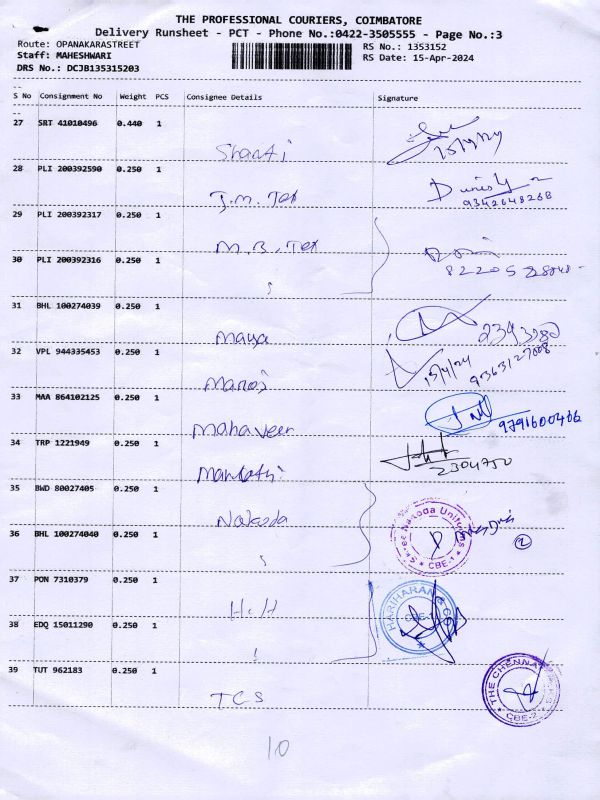 THE PROFESSIONAL COURIERS, COIMBATORE
Delivery Runsheet - PCT - Phone No.:0422-3505555 - Page No.:3
Route: OPANAKARASTREET
RS No.: 1353152
Staff: MAHESHWARI
RS Date: 15-Apr-2024
DRS No.: DCJB135315203
S No Consignment No Weight PCS Consignee Details Signature
27 SRT 41010496 0.440 1
Shanti
15/4/24
28 PLI 200392590 0.250 1
J.M. Tex
9342648268
29 PLI 200392317 0.250 1
M.B. Tex
30 PLI 200392316 0.250 1
31 BHL 100274039 0.250 1
Maya
2393280
32 VPL 944335453 0.250 1
Manoj
15/4/24
9363127008
33 MAA 864102125 0.250 1
Mahaveer
9791600466
34 TRP 1221949 0.250 1
Maruthi
2304750
35 BWD 80027405 0.250 1
Nakoda
36 BHL 100274040 0.250 1
CBE-1
2
37 PON 7310379 0.250 1
H.H
HARIHARAN &
CBE-1
38 EDQ 15011290 0.250 1
39 TUT 962183 0.250 1
TCS
THE CHENNAI
CBE-2
10